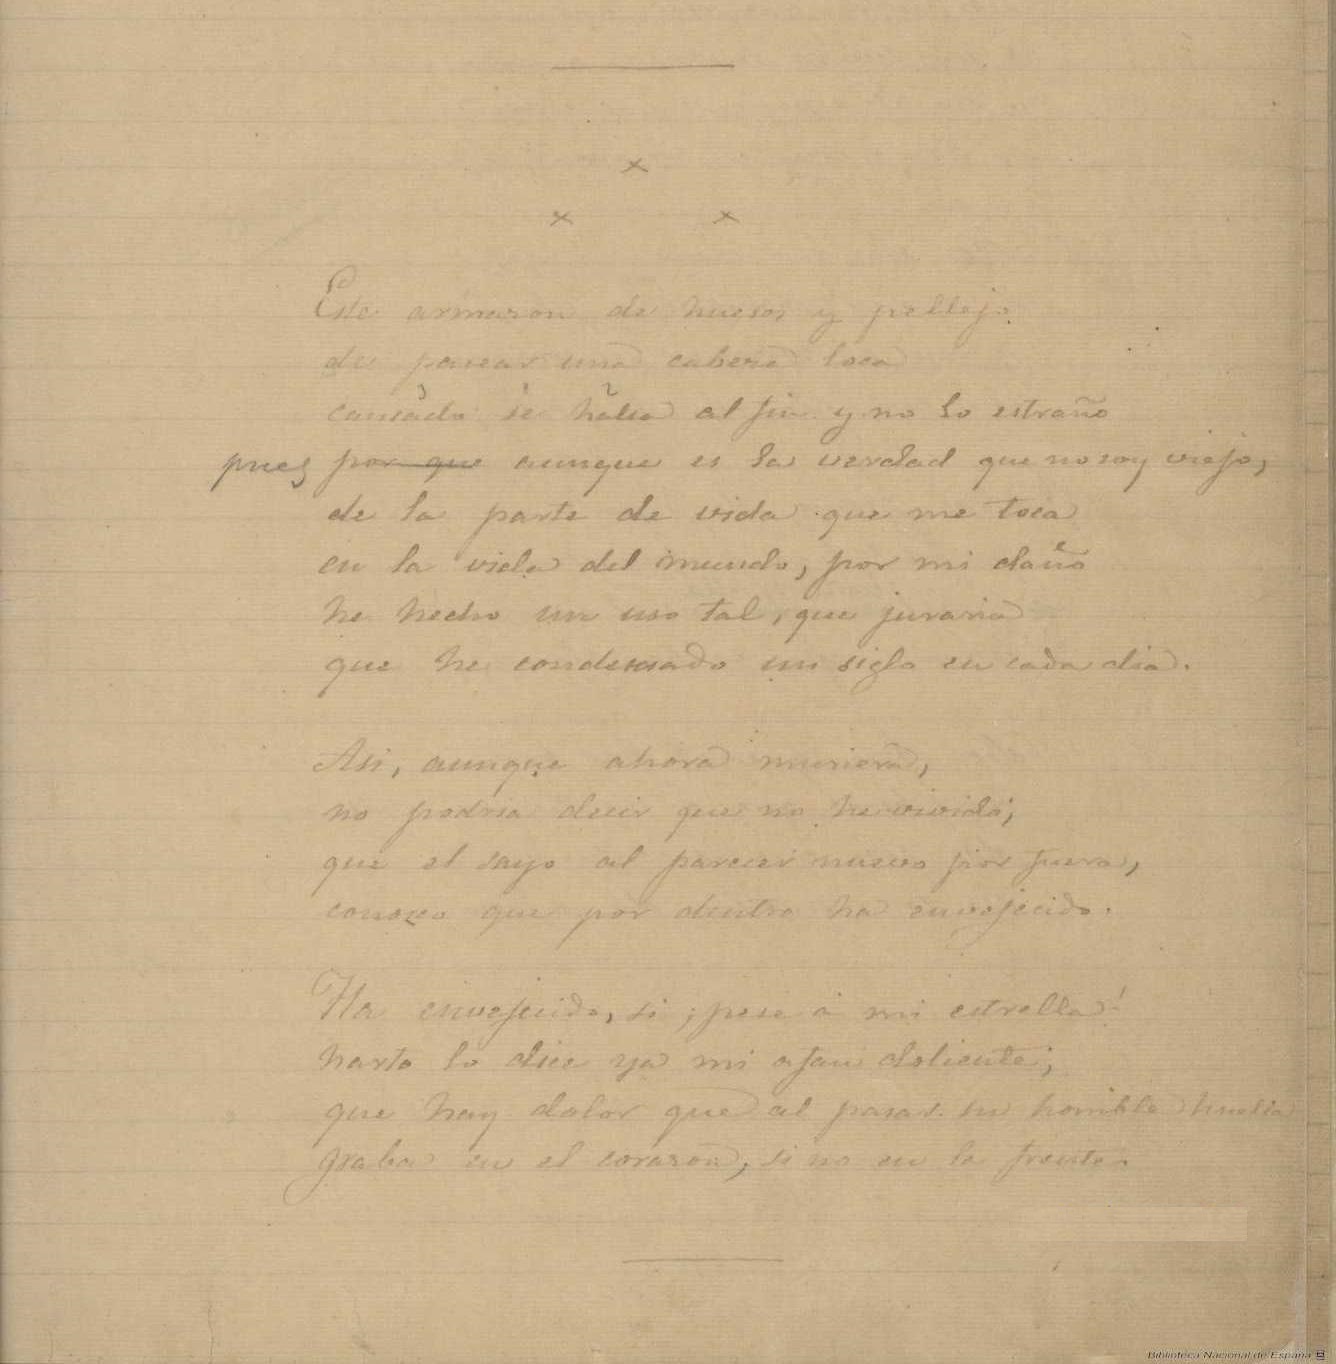 Este armazon de huesos y pellejo
de pasear una cabeza loca
cansado se halla al fin y no lo estraño
pues por que aunque es la verdad que no soy viejo,
de la parte de vida que me toca
en la vida del mundo, por mi daño
he hecho un uso tal, que juraria
que he condensado un siglo en cada dia.
Asi, aunque ahora muriera,
no podria decir que no he vivido;
que el sayo al parecer nuevo por fuera,
conozco que por dentro ha envejecido.
Ha envejecido, si ; pese á mi estrella!
harto lo dice ya mi afan doliente;
que hay dolor que al pasar su horrible huella
graba en el corazon, si no en la frente.
Biblioteca Nacional de España